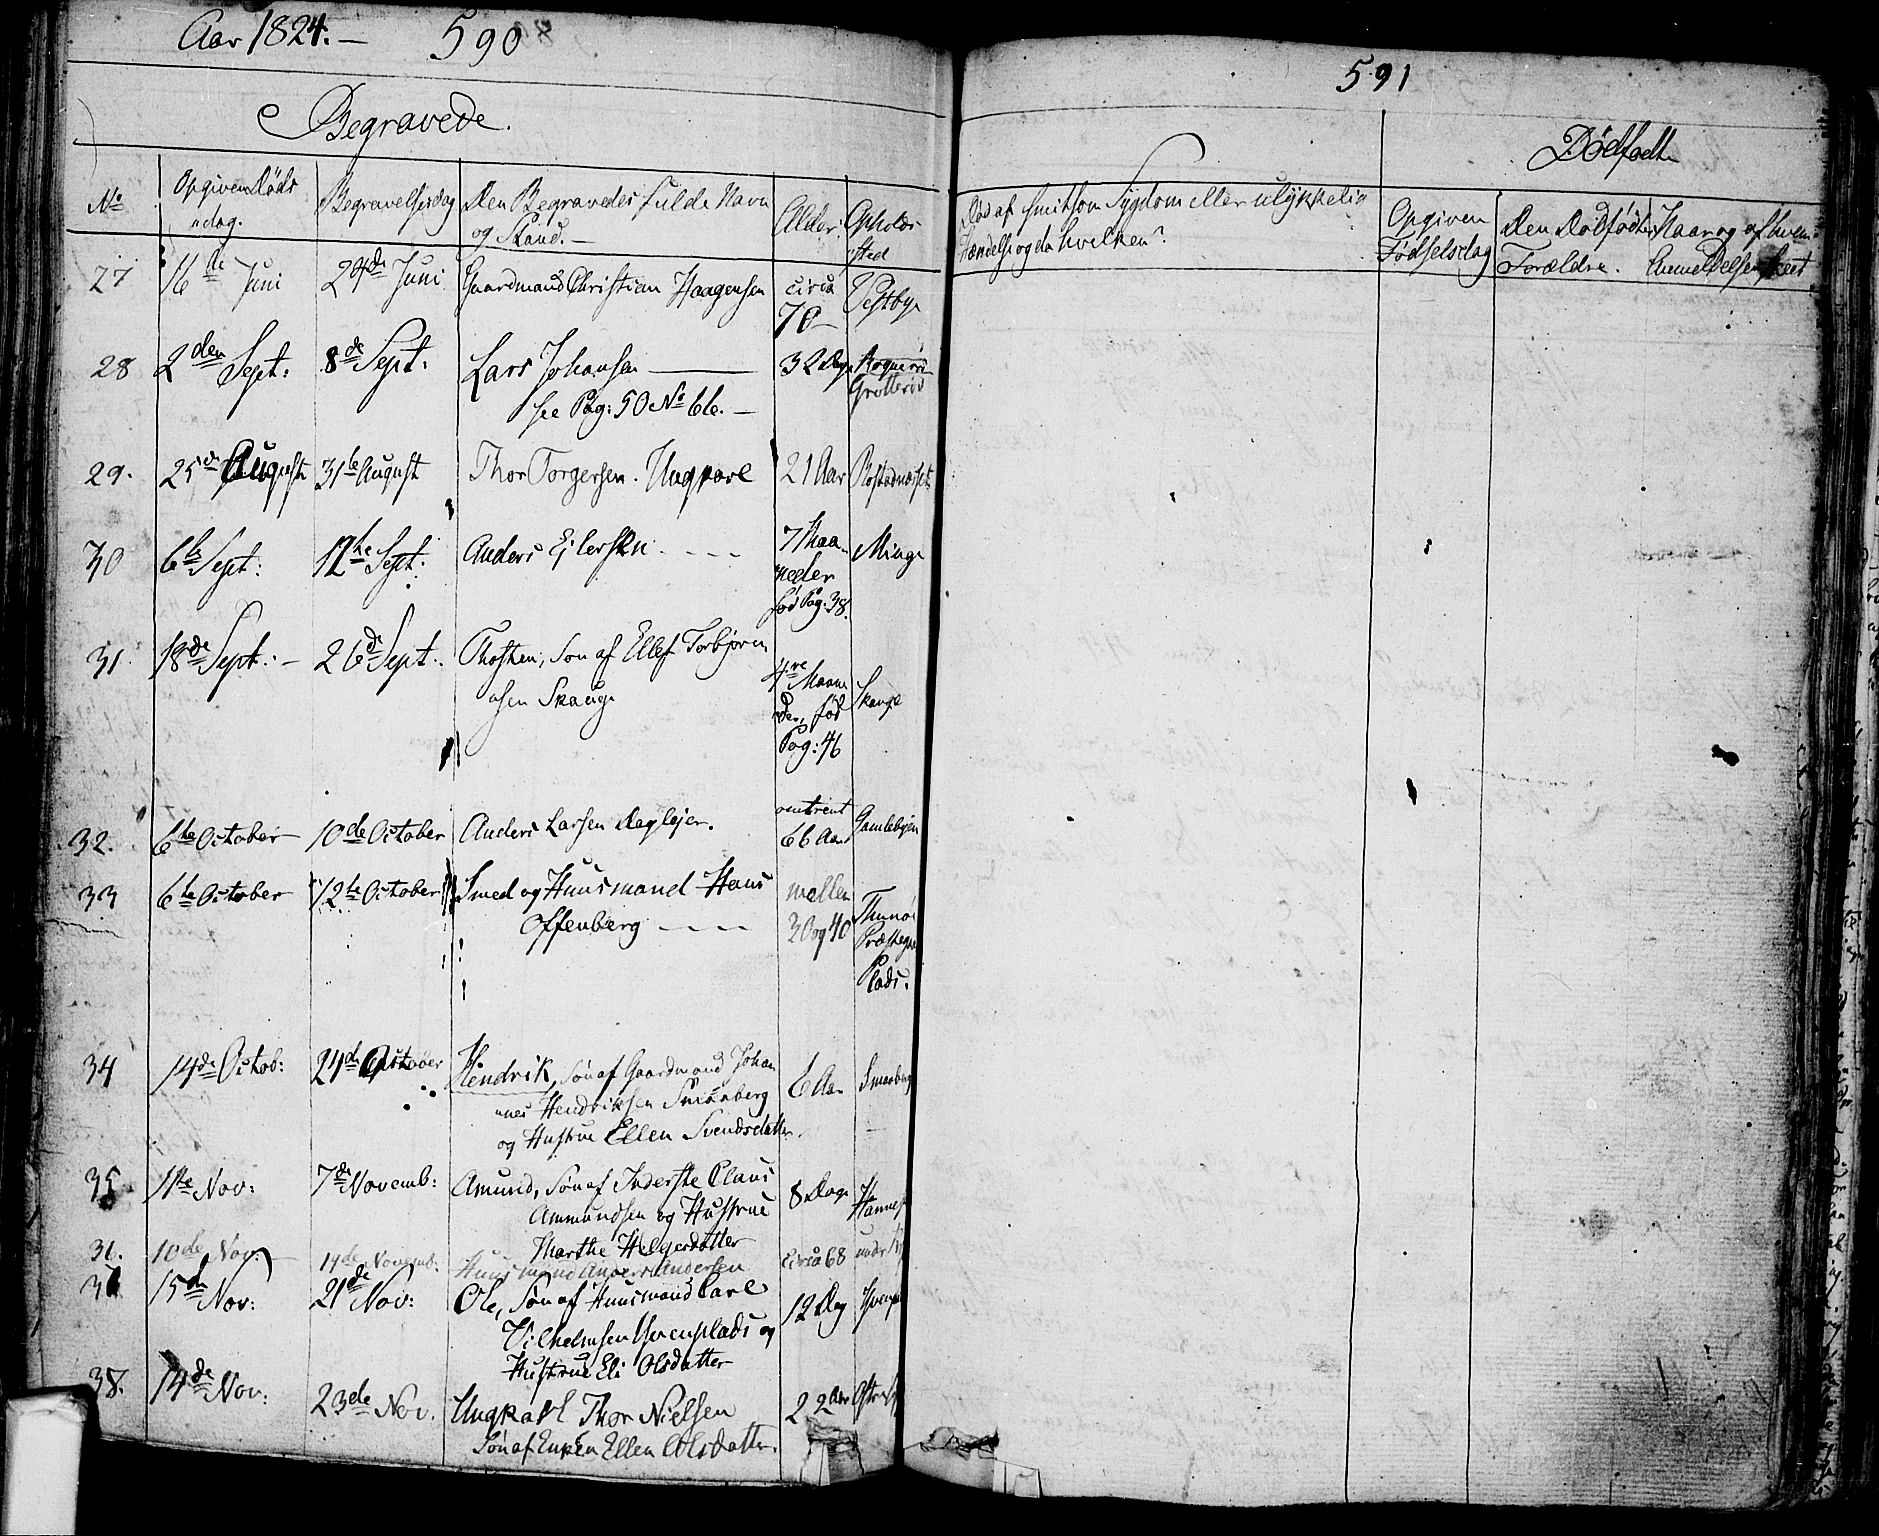 Aar 1824. — 590
Begravede.
No
Opgiven Døds
dag.
Begravelsesdag
Den Begravedes fulde Navn
og Stand. —
Alder.
Opholds
sted
27 16de Juni 24de Juni Gaardmand Christian Haagensen circa Vestbye
70 —
28 2den Sept: 8de Sept: Lars Johansen — 32 Dage
Grotterød
see Pag: 50 No 66. —
29. 25de August 31te August Thor Torgersen. Ungkarl 21 Aar
30 6te Sept: 12te Sept: Anders Ejlersen - - - 7 Maa- Minge
neder
fød Pag: 38.
31. 18de Sept: — 26de Sept: Thosten, Søn af Ellef Torbjørn
sen Skauge
4re Maane
der, fød Skauge
Pag: 46
32. 6te October — 10de October Anders Larsen Daglejer. omtrent Gamlebyen
66 Aar
33 6te October 12te October Smed og Huusmand Hans mellem
Offenberg - - - - 30 og 40 Thunøe
Præstegrs
Plads.
34 14de Octob: 24de October Hendrik, Søn af Gaardmand Johan
nes Hendriksen Smaaberg 6 Aar Smaaberg
og Hustrue Ellen Svendsdatter.
35 1ste Nov: 7de Novemb: Amund, Søn af Inderste Claus
Ammundsen og Hustrue 8 Dage
Marthe Helgesdatter
36. 10de Nov: — 19de Novemb: Huusmand Anders Andersen circa 68
37 15de Nov: 21de Nov: Ole, Søn af Huusmand Carl
Vilhelmsen Hvensplads og 12 Dag
Hustrue Eli Olsdatter
38. 14de Nov: 23de Nov. Ungkarl Thor Nielsen 22 Aar
Søn af Enken Ellen Olsdatter.
591
Dødfødte
Død af Smitsom Sygdom eller ulykkelig
Hændelse og da hvilken?
Opgiven
Fødselsdag
Den Dødfødtes
Forældre.
Naar og af hvem
Anmeldelsen skeet